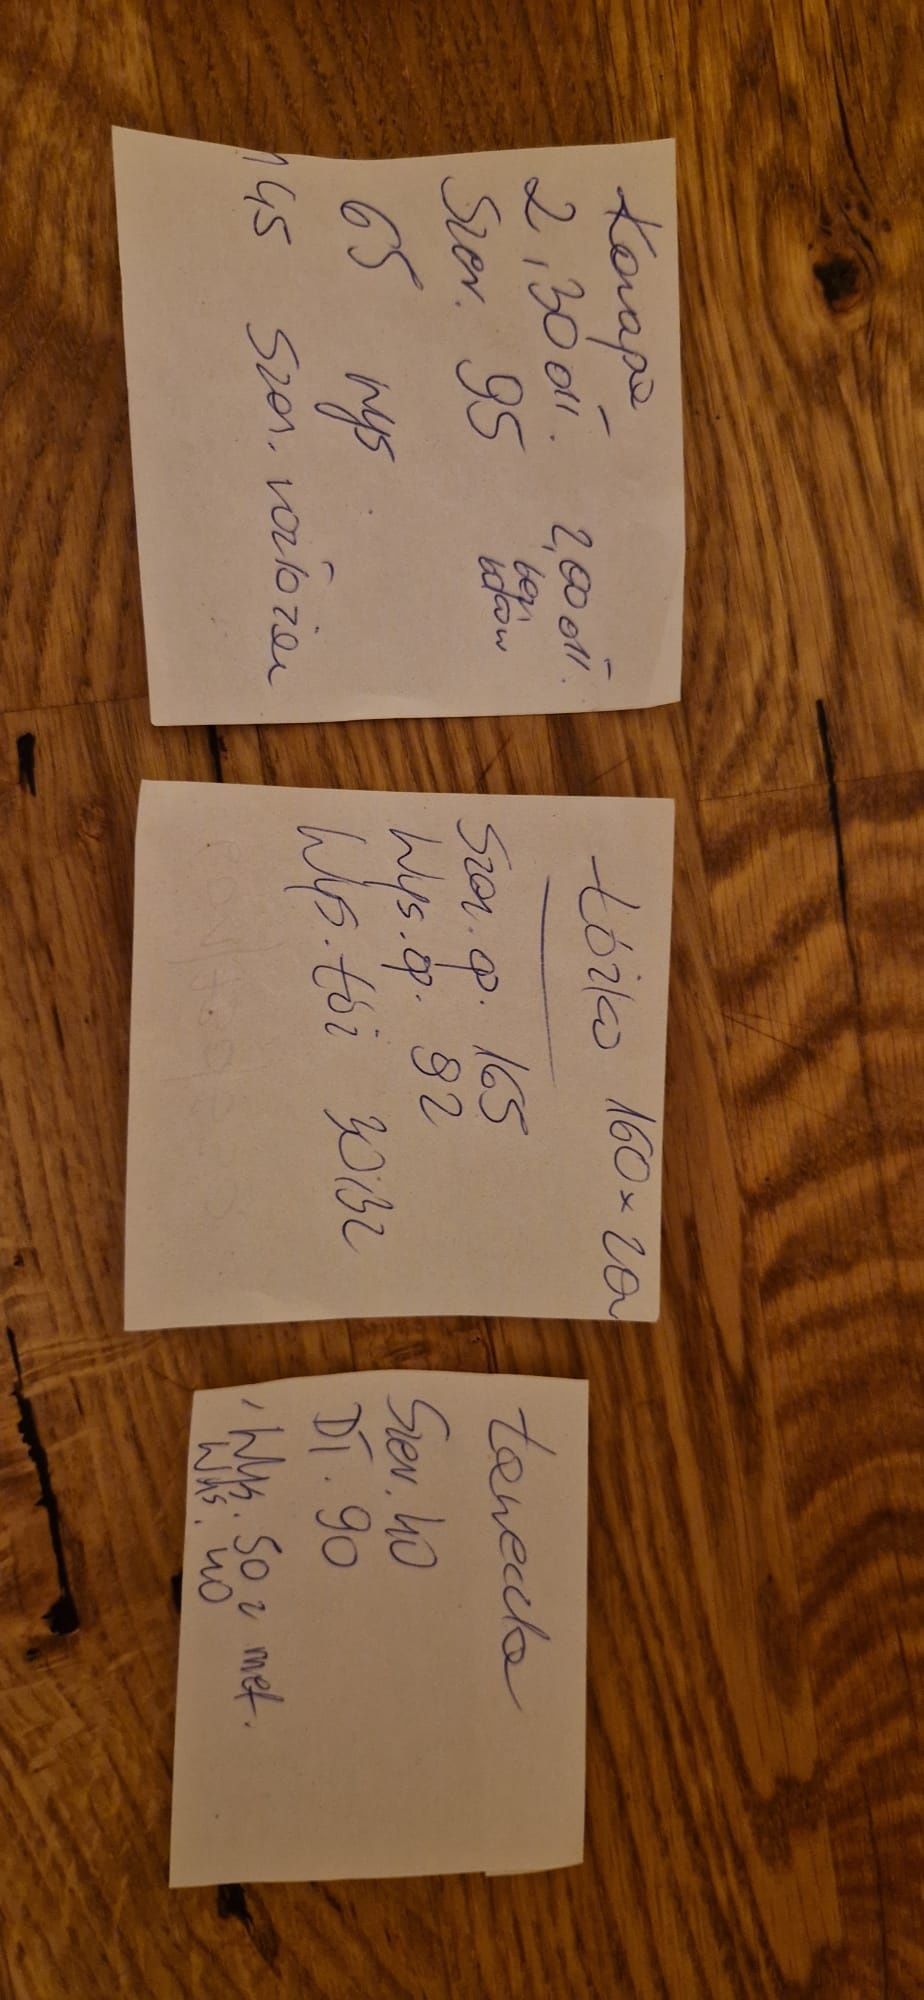 Kanapa
2,30 dł. 2,00 dł.
bez
boków
Szer. 95
65 wys.
145 Szer. rozłożen
Łóżko 160 x 200
Szer. ł. 165
Wys. ł. 92
Wys. łóż 30/32
Ławeczka
Szer. 40
Dł. 90
Wys. 50 z met.
Wys. 40